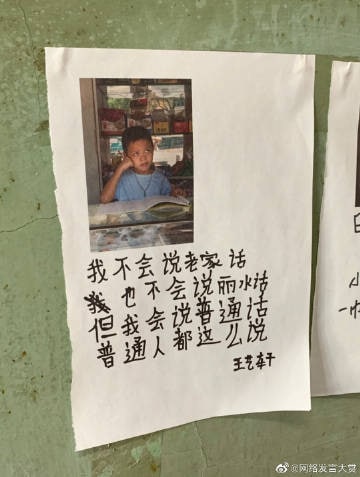 我不会说老家话
我也不会说丽水话
但我会说普通话
普通人都这么说
王艺轩
小
@网络发言大赏